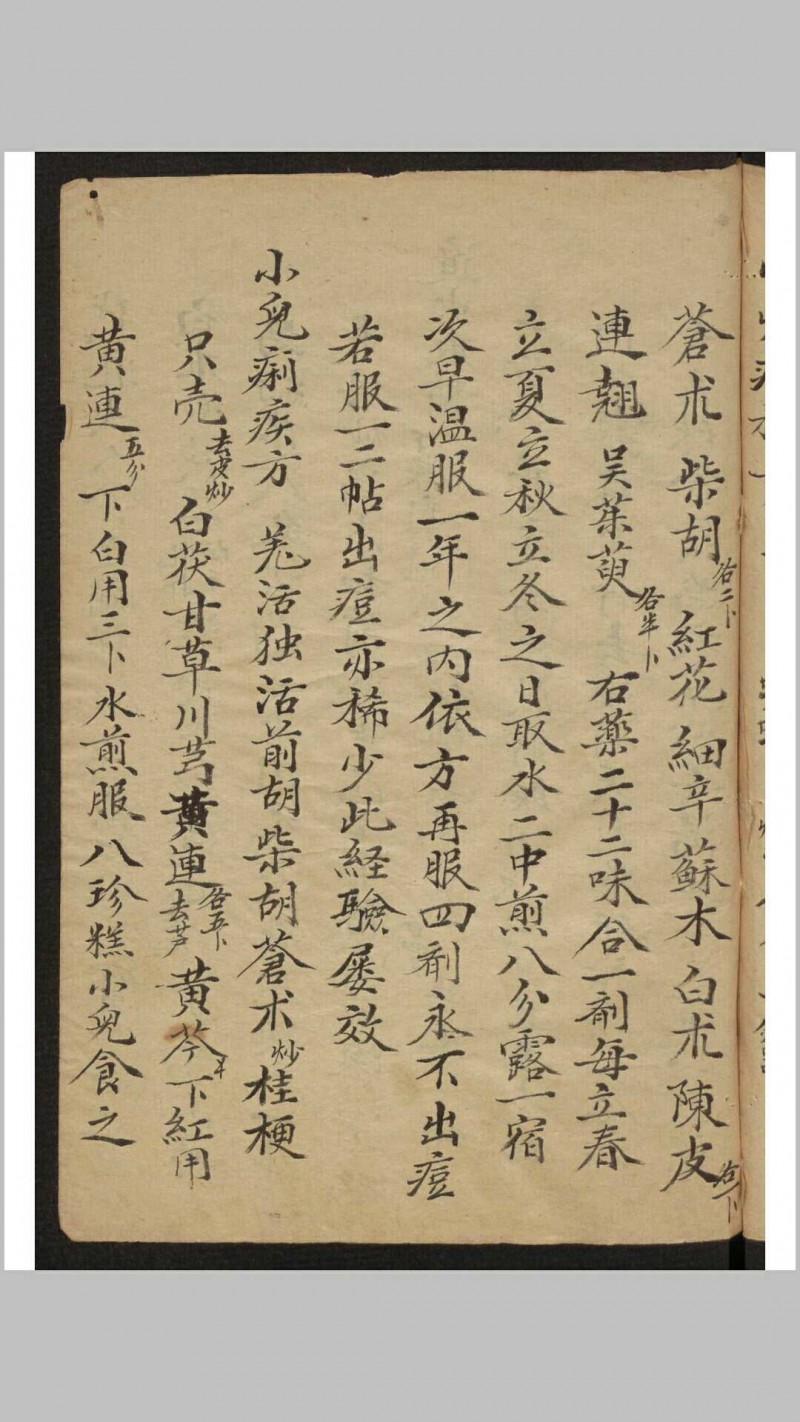 蒼朮 柴胡各二卜 紅花 細辛 蘇木 白朮 陳皮各一卜
連翹 吴茱萸各半卜 右藥二十二味合一劑每立春
立夏立秋立冬之日取水二中煎八分露一宿
次早温服一年之內依方再服四剂永不出痘
若服一二帖出痘亦稀少此経驗屡效
小兒痢疾方 羌活独活前胡柴胡蒼术炒桂梗
只壳去皮炒 白茯甘草川芎黄連各五卜去芦黄芩下紅用
黄連五分下白用三卜水煎服八珍糕小兒食之